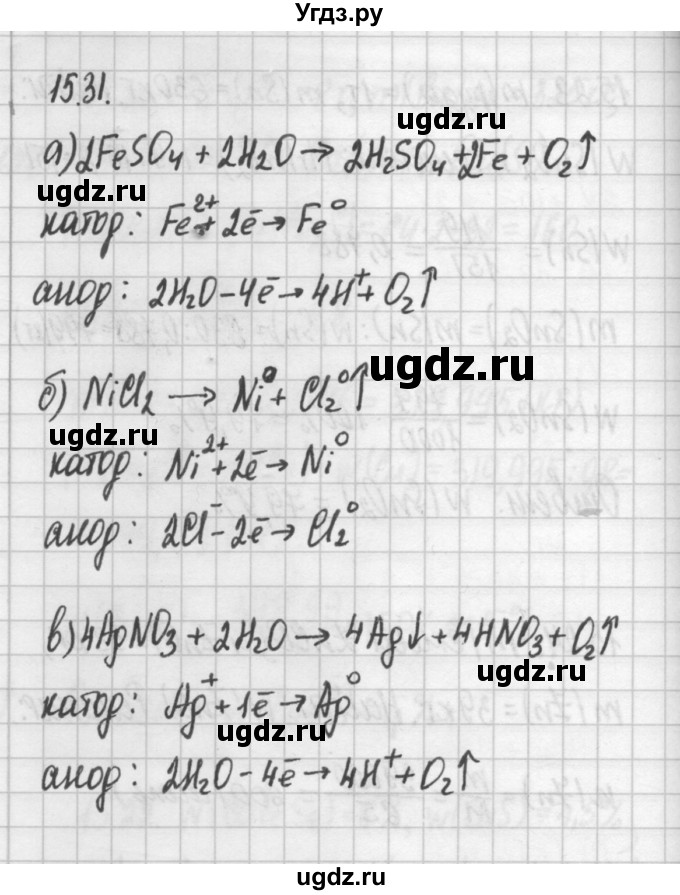 Угдз.ру
15.31.
угдз.ru
а) 2FeSO4 + 2H2O → 2H2SO4 + 2Fe + O2↑
угдз.ru
катод: Fe²⁺ + 2ē → Fe⁰
анод: 2H2O - 4ē → 4H⁺ + O2↑
угдз.ru
б) NiCl2 → Ni⁰ + Cl2⁰↑
угдз.ru
катод: Ni²⁺ + 2ē → Ni⁰
анод: 2Cl⁻ - 2ē → Cl2⁰
в) 4AgNO3 + 2H2O → 4Ag↓ + 4HNO3 + O2↑
угдз.ru
катод: Ag⁺ + 1ē → Ag⁰
угдз.ru
анод: 2H2O - 4ē → 4H⁺ + O2↑
угдз.ru